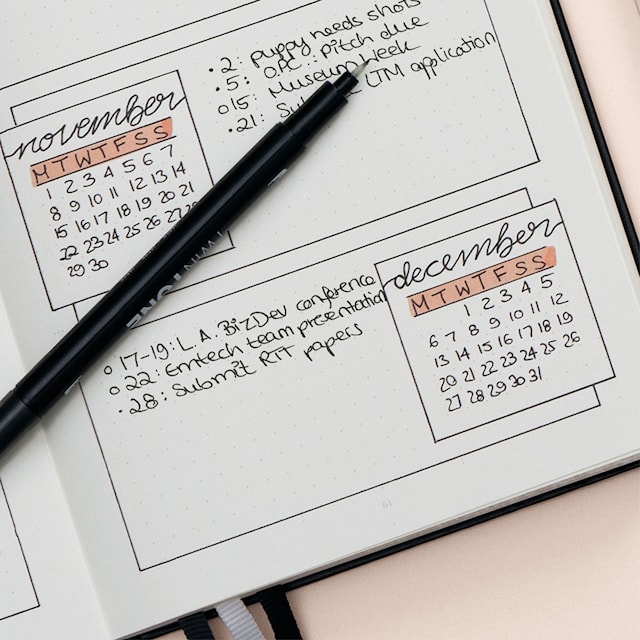 november
M T W T F S S
1 2 3 4 5 6 7
8 9 10 11 12 13 14
15 16 17 18 19 20 21
22 23 24 25 26 27
29 30
• 2: puppy needs shots
• 5: OPC: pitch due
o 15: Museum week
• 21: application
TWINTONE
december
M T W T F S S
1 2 3 4 5
6 7 8 9 10 11 12
13 14 15 16 17 18 19
20 21 22 23 24 25 26
27 28 29 30 31
o 17-19: L.A. BizDev conference
o 22: Emtech team presentation
• 28: Submit RTT papers